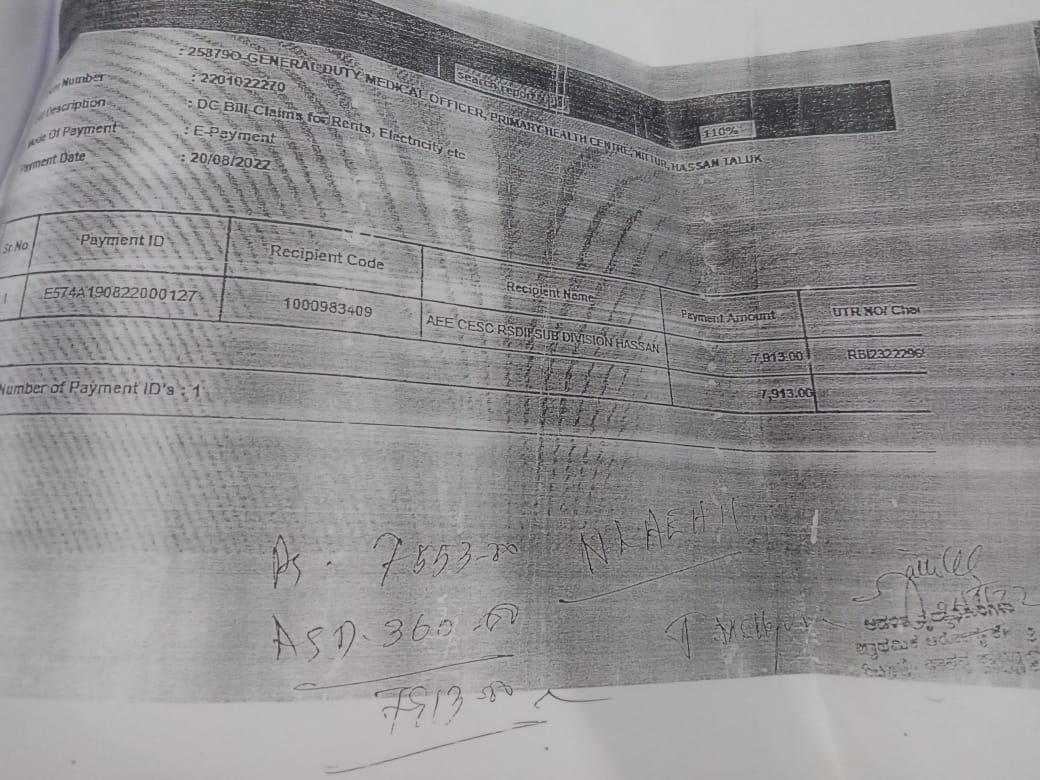 Search report
110%
: 25879O-GENERAL DUTY MEDICAL OFFICER, PRIMARY HEALTH CENTRE, NITTUR, HASSAN TALUK
Number : 2201022270
Description : DC Bill-Claims for Rents, Electricity etc
Mode Of Payment : E-Payment
Payment Date : 20/08/2022
Sr No Payment ID Recipient Code Recipient Name Payment Amount UTR NO/ Che
1 E574A190822000127 1000983409 AEE CESC RSDII SUB DIVISION HASSAN 7,913.00 RBI2322296
Number of Payment ID's : 1 7,913.00
7553-00
ASD. 360-00
7913-00